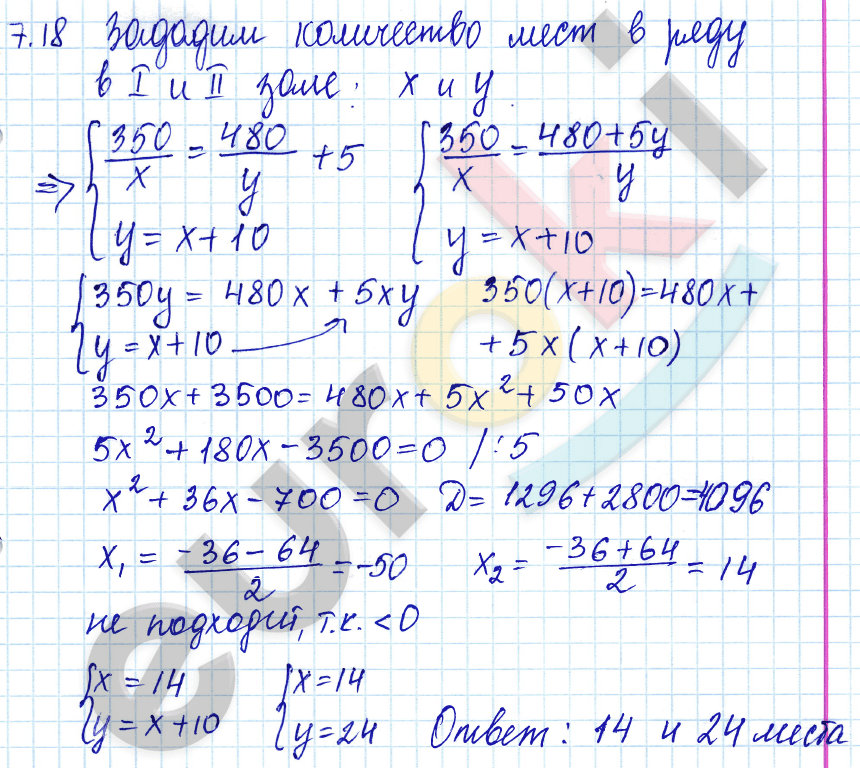 7.18 Зададим количество мест в ряду
в I и II зале: x и y
⇒ { 350/x = 480/y + 5 { 350/x = (480+5y)/y
y = x+10 y = x+10
{ 350y = 480x + 5xy 350(x+10)=480x+
y = x+10 +5x(x+10)
350x+3500=480x+5x²+50x
5x²+180x-3500=0 /:5
x²+36x-700=0 Д= 1296+2800=4096
x₁ = (-36-64)/2 = -50 x₂ = (-36+64)/2 = 14
не подходит, т.к. <0
{ x=14 { x=14
y=x+10 y=24 Ответ: 14 и 24 места
euroki